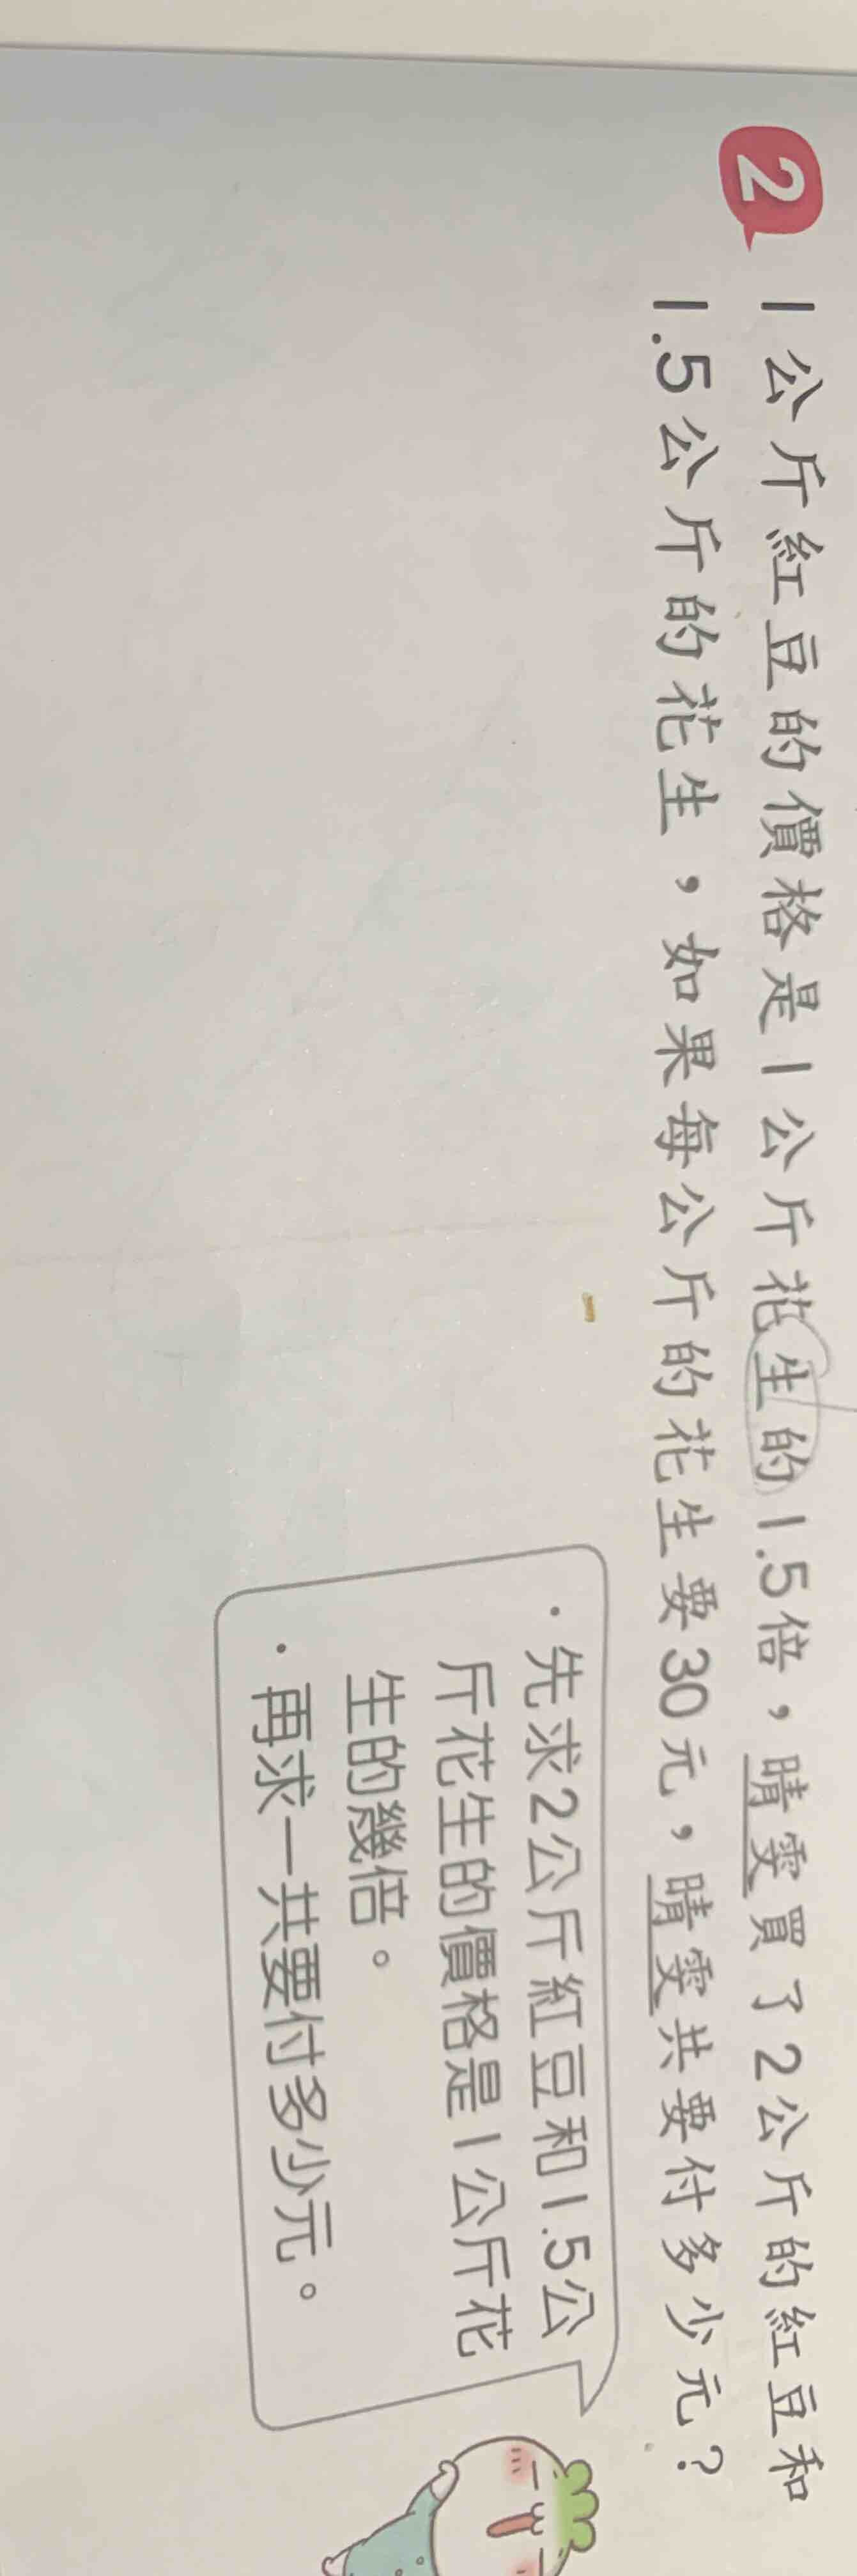 2
1公斤紅豆的價格是1公斤花生的1.5倍，晴雯買了2公斤的紅豆和
1.5公斤的花生，如果每公斤的花生要30元，晴雯共要付多少元？
·先求2公斤紅豆和1.5公
斤花生的價格是1公斤花
生的幾倍。
·再求一共要付多少元。